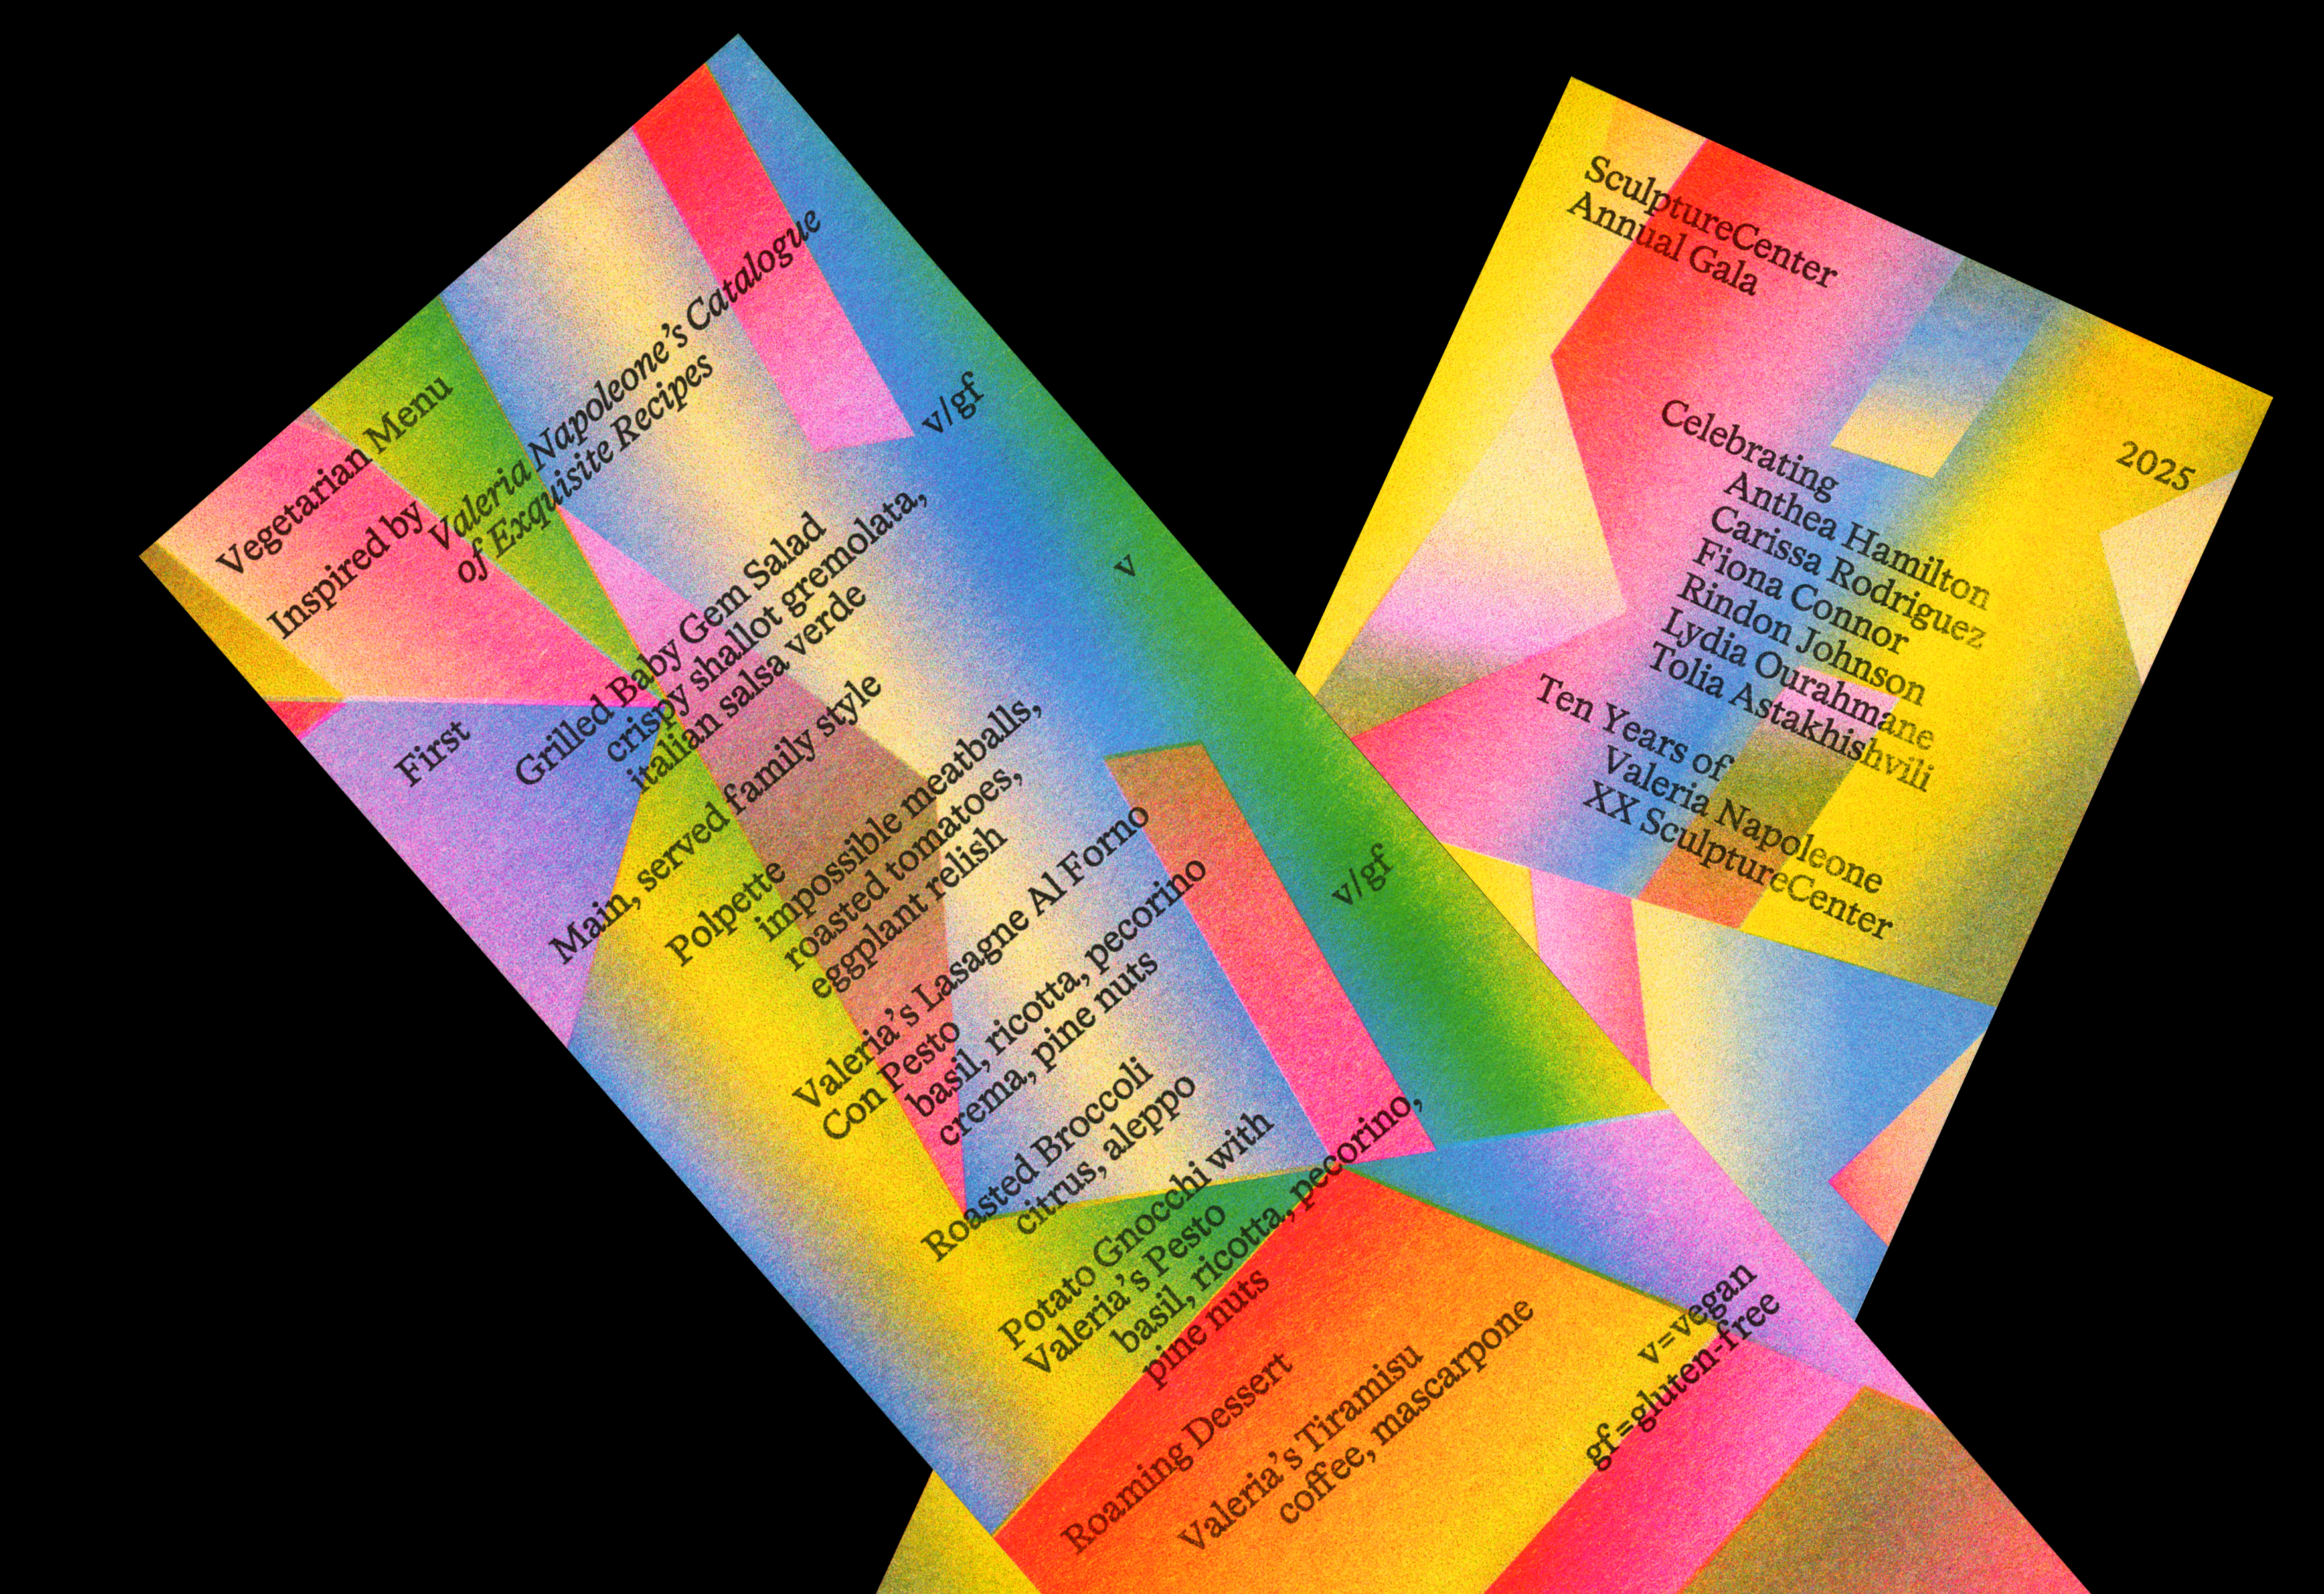 Vegetarian Menu
Inspired by
Valeria Napoleone’s Catalogue
of Exquisite Recipes
First
Grilled Baby Gem Salad v/gf
crispy shallot gremolata,
italian salsa verde
Main, served family style
Polpette v
impossible meatballs,
roasted tomatoes,
eggplant relish
Valeria’s Lasagne Al Forno
Con Pesto
basil, ricotta, pecorino
crema, pine nuts
Roasted Broccoli v/gf
citrus, aleppo
Potato Gnocchi with
Valeria’s Pesto
basil, ricotta, pecorino,
pine nuts
Roaming Dessert
Valeria’s Tiramisu
coffee, mascarpone
v=vegan
gf=gluten-free
SculptureCenter
Annual Gala
2025
Celebrating
Anthea Hamilton
Carissa Rodriguez
Fiona Connor
Rindon Johnson
Lydia Ourahmane
Tolia Astakhishvili
Ten Years of
Valeria Napoleone
XX SculptureCenter